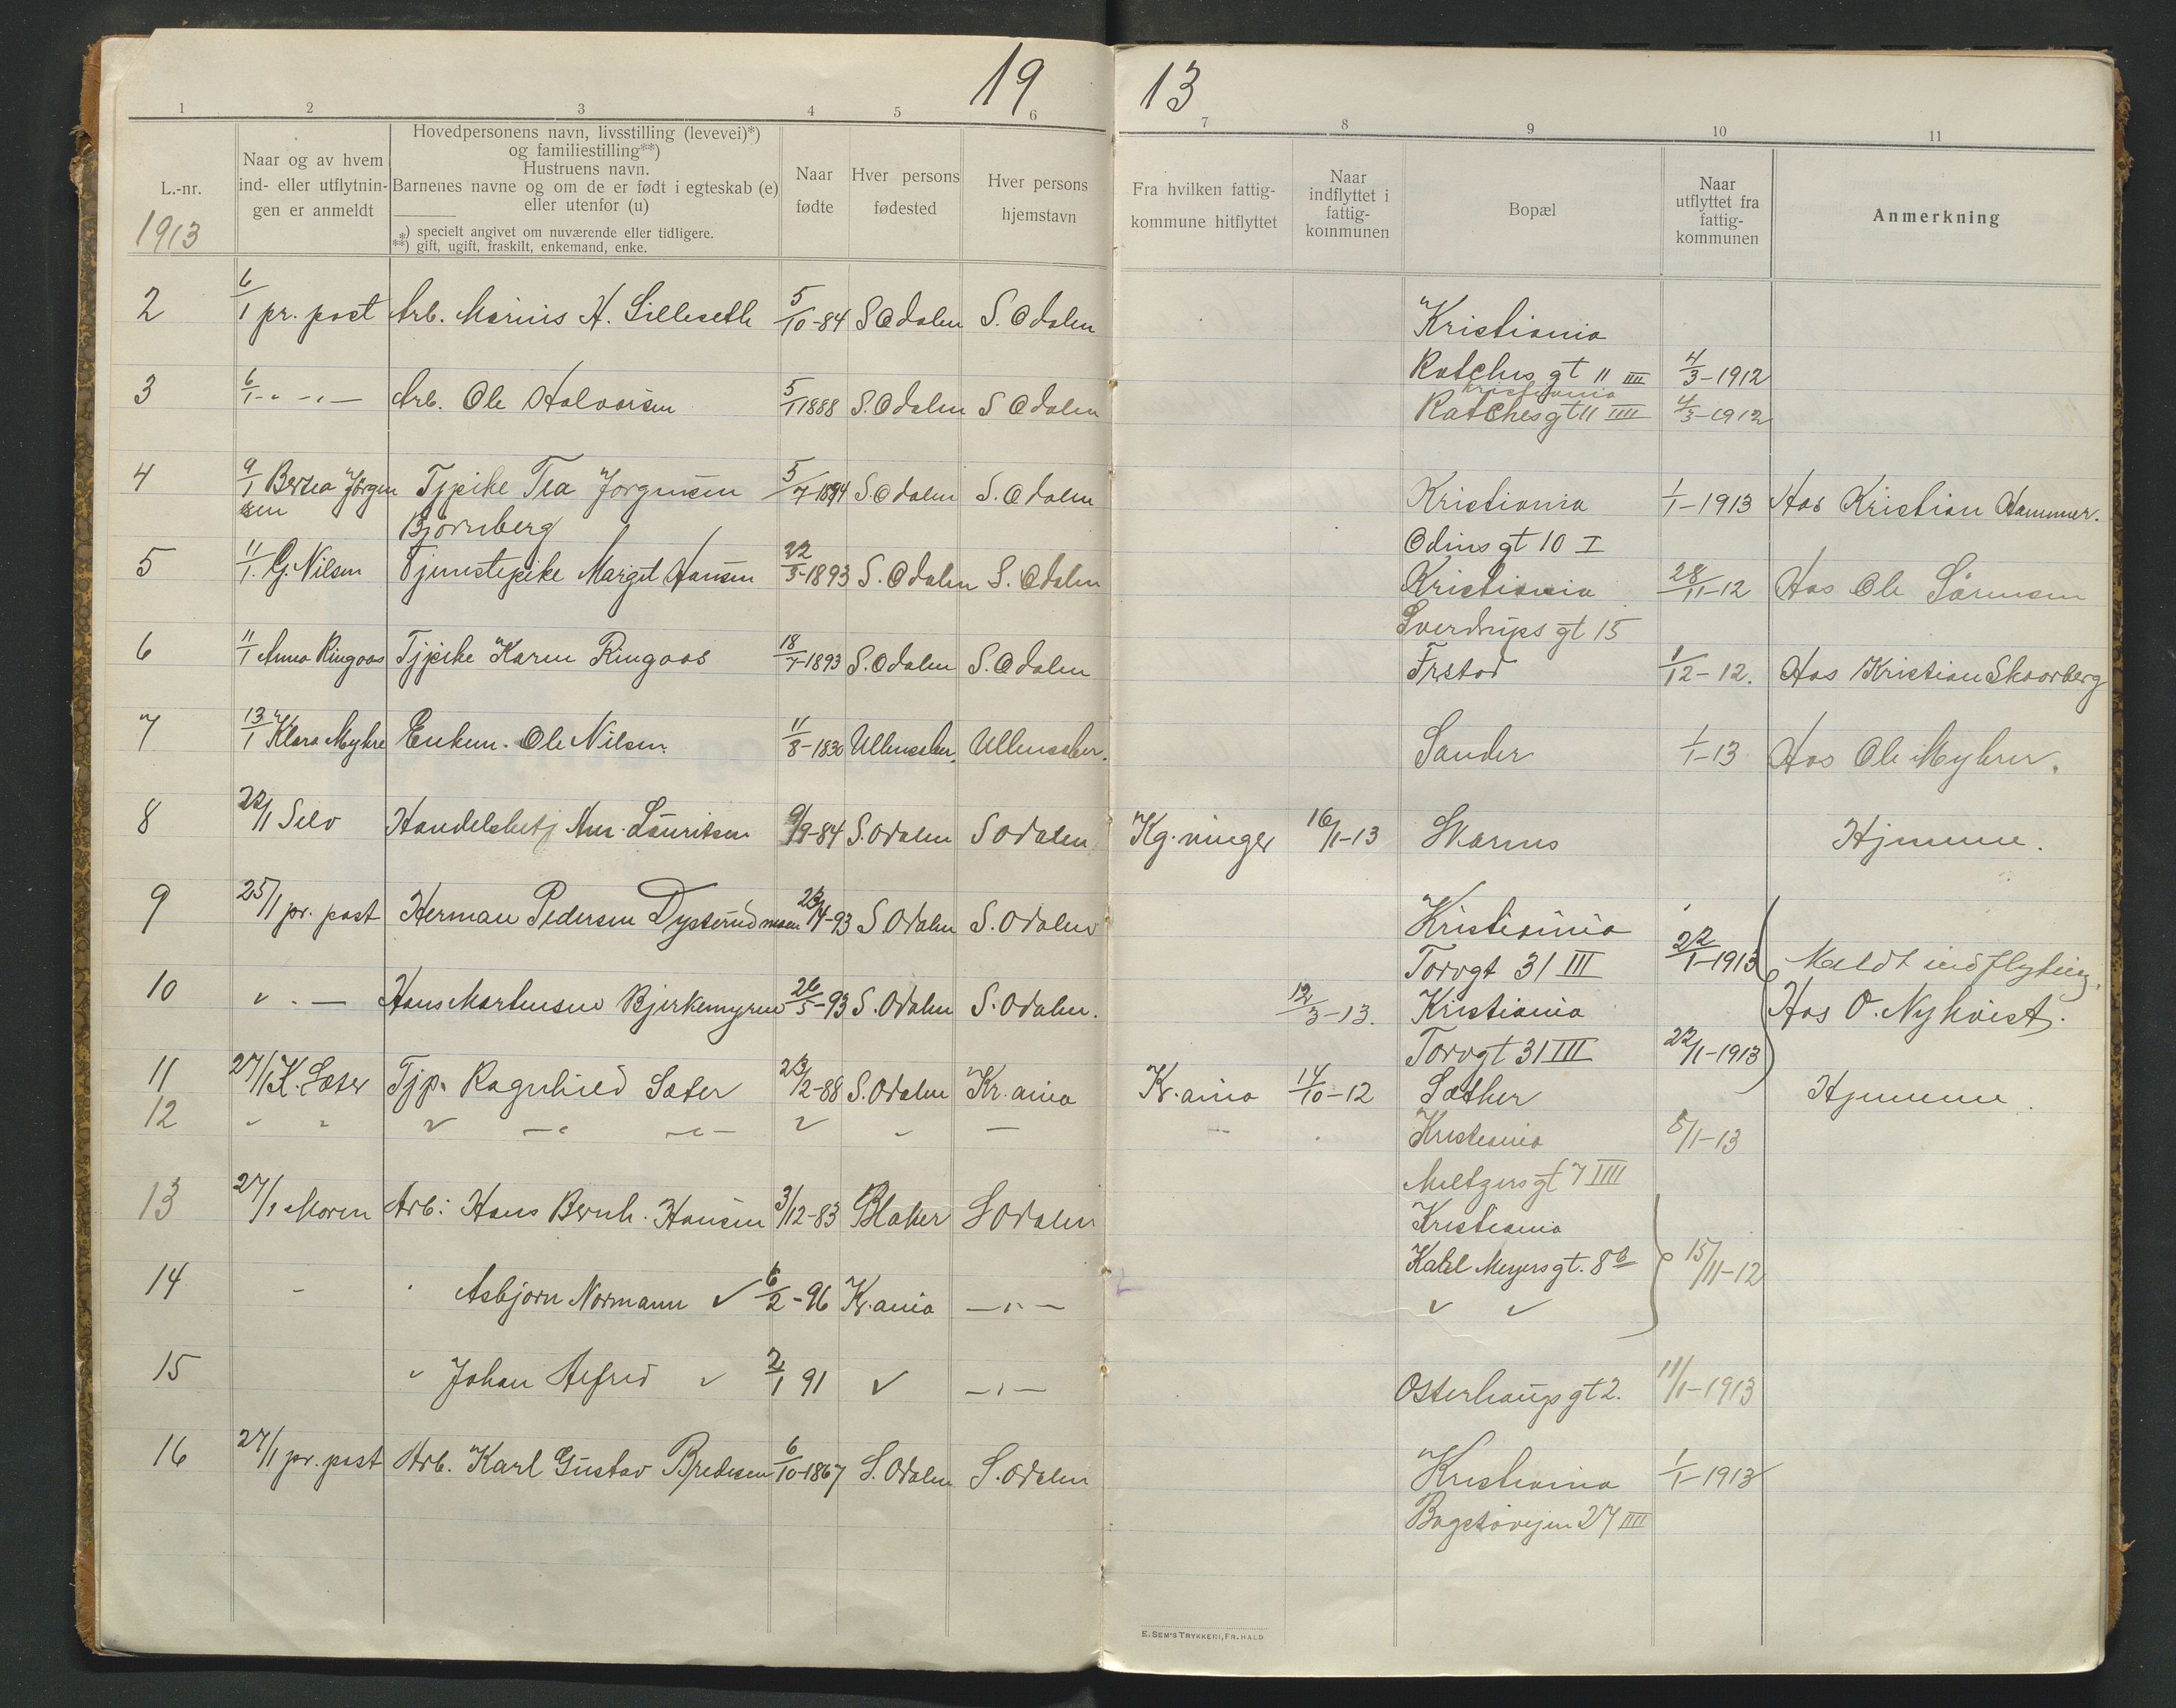 19 13
1 2 3 4 5 6 7 8 9 10 11
L.-nr.
1913
Naar og av hvem
ind- eller utflytnin-
gen er anmeldt
Hovedpersonens navn, livsstilling (levevei)*)
og familiestilling**)
Hustruens navn.
Barnenes navne og om de er født i egteskab (e)
eller utenfor (u)
*) specielt angivet om nuværende eller tidligere.
**) gift, ugift, fraskilt, enkemand, enke.
Naar
fødte
Hver persons
fødested
Hver persons
hjemstavn
Fra hvilken fattig-
kommune hitflyttet
Naar
indflyttet i
fattig-
kommunen
Bopæl
Naar
utflyttet fra
fattig-
kommunen
Anmerkning
2 6/1 pr. post Arb. Marius H. Silleseth 5/10-84 S Odalen S. Odalen Kristiania
Ratchus gt 11 IIII 4/3-1912
3 6/1 -"- -"- Arb. Ole Halvorsen 5/1 1888 S. Odalen S Odalen Kristiania
Ratchesgt 11 IIII 4/3-1912
4 9/1 Bertea Jørgen Tjpike Tea Jorgensen 5/7-1894 S. Odalen S. Odalen Kristiania 1/1-1913 Hos Kristian Hammer.
sen Bjørnberg Odins gt 10 I
5 11/1. G. Nilsen Tjenstepike Margit Hansen 22/3-1893 S. Odalen S. Odalen Kristiania 28/11-12 Hos Ole Sørensen
Sverdrups gt 15
6 11/1 Anna Ringaas Tjpike Karen Ringaas 18/7-1893 S. Odalen S. Odalen Frstad 1/12-12. Hos Kristian Skaarberg
7 13/1 Klara Myhre Enkem. Ole Nilsen. 11/8-1830 Ullensaker. Ullensaker. Sander 1/1-13 Hos Ole Myhrer.
8 22/1 Selv Handelsbetj Anr. Lauritsen 9/9-84 S. Odalen S Odalen Kg.vinger 16/1-13 Skarnes Hjemme.
9 25/1 pr. post Herman Pedersen Dysterud 23/4-93 S Odalen S. Odalen Kristiania
Torvgt 31 III 22/1-1913 Meldt indflyting.
10 " - — Hans Martensen Bjerkemyren 26/5-93 S. Odalen S. Odalen. 12/3-13. Kristiania Hos O. Nykvist.
Torvgt 31 III 22/1-1913
11 27/1 K. Sæter Tjp. Ragnhild Sæter 23/12-88 S. Odalen Kr.ania Kr.ania 14/10-12 Sæther Hjemme.
12 " " " -"- -"- " " — -"- " Kristiania 8/1-13
Meltzersgt 7 IIII
13 27/1 Moren Arb. Hans Bernh. Hansen 3/12-83 Blaker S Odalen Kristiania
Kahl Meyersgt. 8 b 15/11-12
14 " " Asbjørn Normann " 6/2-96 Kr.ania -"- " "
15 " Johan Alfred " 2/1 91 " -"- Osterhaugs gt 2. 11/1-1913
16 27/1 pr. post Arb. Karl Gustav Bredesen 6/10-1867 S. Odalen S. Odalen Kristiania 1/1-1913
Bogstavejen 27 IIII
E. SEM'S TRYKKERI, FR.HALD